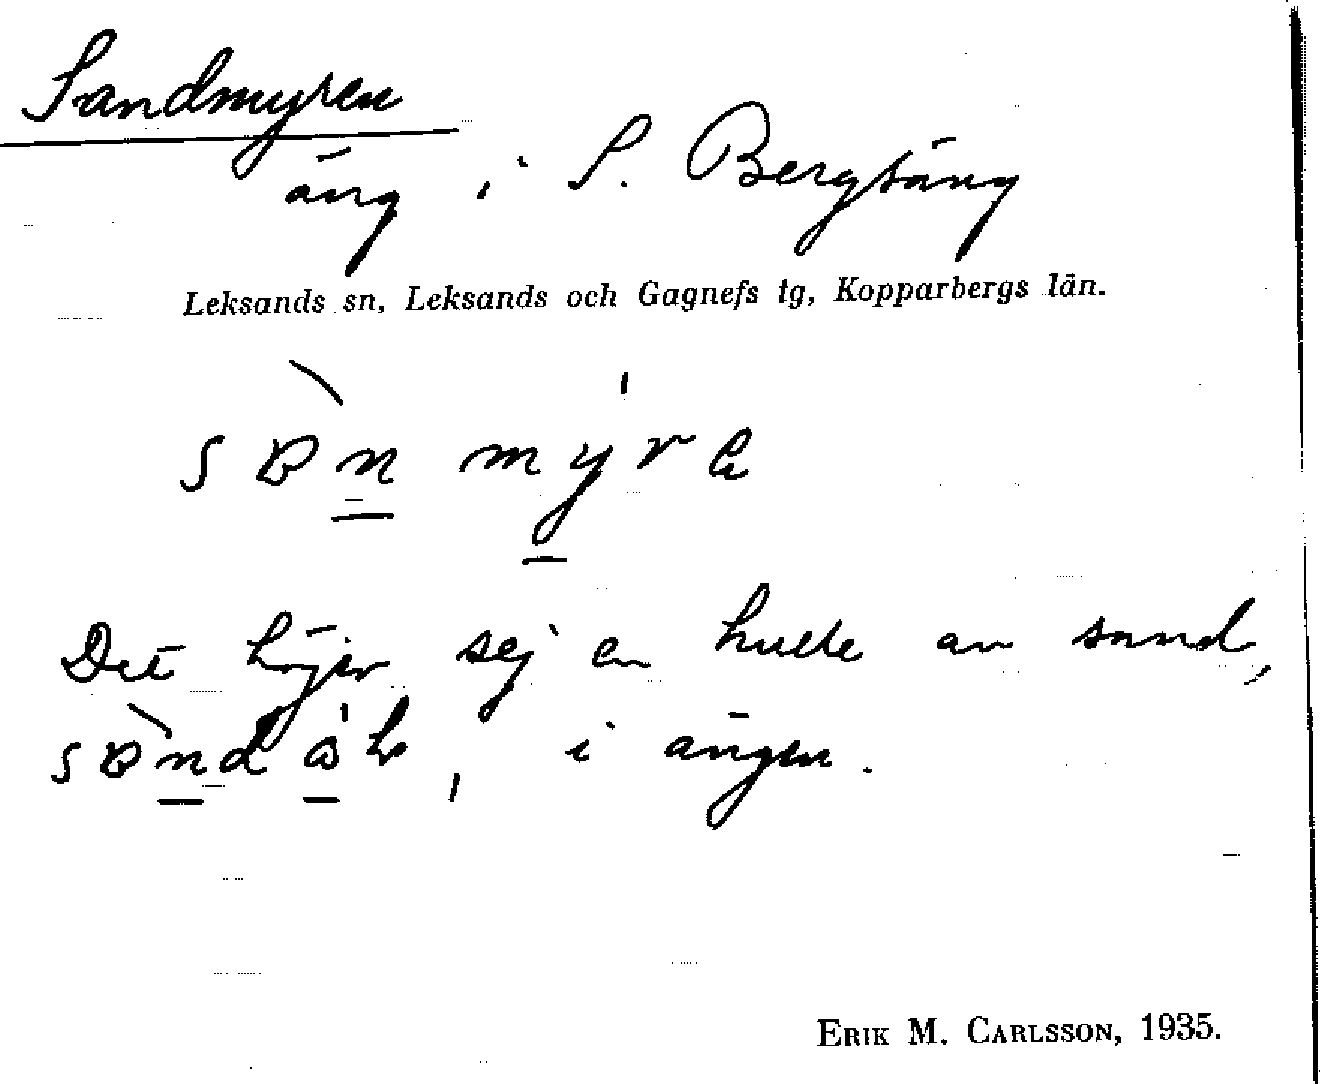 Sandmyren
äng i S. Bergsäng
Leksands sn, Leksands och Gagnefs tg, Kopparbergs län.
Det höjer sej en kulle av sand,
i ängen.
ERIK M. CARLSSON, 1935.